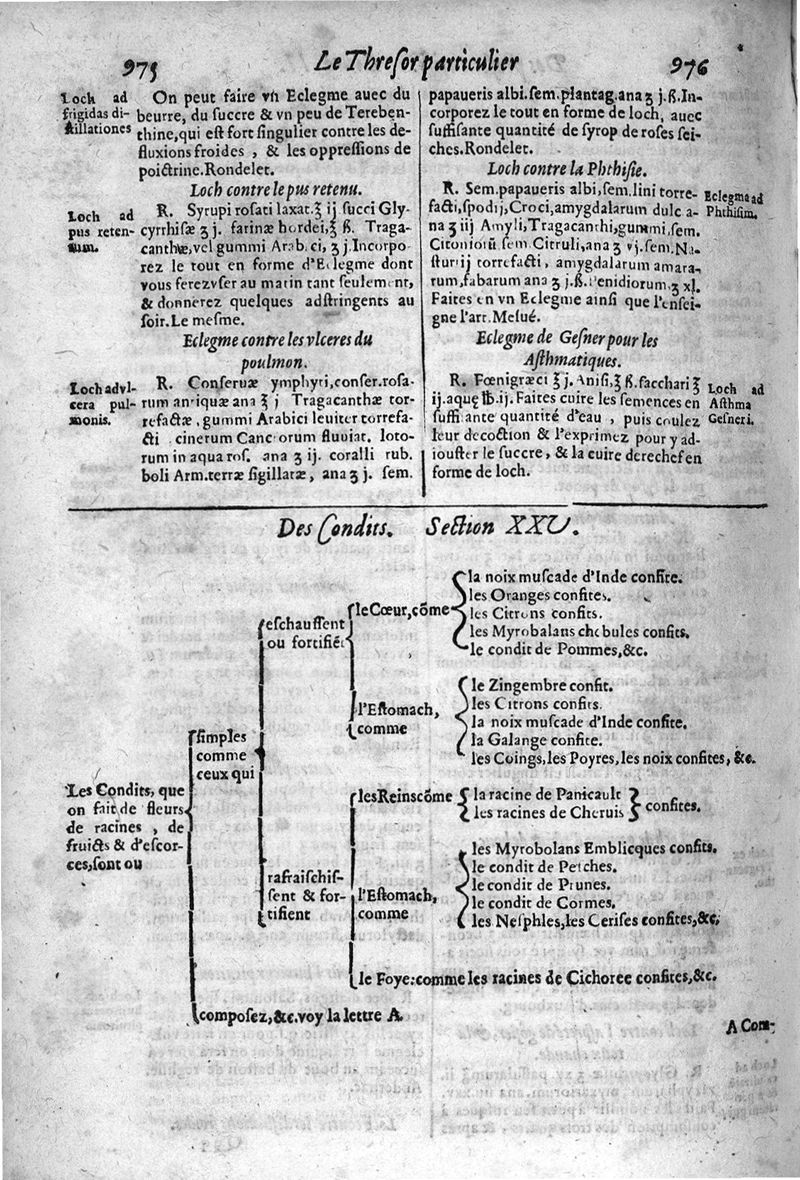 975
Le Threſor particulier
976
Loch ad
frigidas di-
ſtillationes
On peut faire vn Eclegme auec du
beurre, du ſuccre & vn peu de Tereben-
thine, qui eſt fort ſingulier contre les de-
fluxions froides , & les oppreſſions de
poictrine. Rondelet.
Loch contre le pus retenu.
Loch ad
pus reten-
tum.
R. Syrupi roſati laxat. ℥ ij ſucci Gly-
cyrrhiſæ ʒ j. farinæ hordei, ʒ ß. Traga-
canthæ, vel gummi Arabici, ʒ j. Incorpo-
rez le tout en forme d'Eclegme dont
vous ferez vſer au matin tant ſeulement,
& donnerez quelques adſtringents au
ſoir. Le meſme.
Eclegme contre les vlceres du
poulmon.
Loch ad vl-
cera pul-
monis.
R. Conſeruæ ymphyti, conſer. roſa-
rum antiquæ ana ℥ j Tragacanthæ tor-
refactæ, gummi Arabici leuiter torrefa-
cti cinerum Cancrorum fluuiat. loto-
rum in aqua roſ. ana ʒ ij. coralli rub.
boli Arm. terræ ſigillatæ, ana ʒ j. ſem.
papaueris albi. ſem. plantag. ana ʒ j. ß. In-
corporez le tout en forme de loch, auec
ſuffiſante quantité de ſyrop de roſes ſei-
ches. Rondelet.
Loch contre la Phthiſie.
Eclegma ad
Phthiſim.
R. Sem. papaueris albi, ſem. lini torre-
facti, ſpodij, Croci, amygdalarum dulc a-
na ʒ iij Amyli, Tragacanthi, gummi, ſem.
Citoniorū ſem. Citruli, ana ʒ vj. ſem. Na-
ſturtij torrefacti, amygdalarum amara-
rum, fabarum ana ʒ j. ß. Penidiorum ʒ xl.
Faites en vn Eclegme ainſi que l'enſei-
gne l'art. Meſué.
Eclegme de Geſner pour les
Aſthmatiques.
Loch ad
Aſthma
Geſneri.
R. Fœnigræci ℥ j. Aniſi, ℥ ß. ſacchari ℥
ij. aquę ℔. ij. Faites cuire les ſemences en
ſuffiſante quantité d'eau , puis coulez
leur decoction & l'exprimez pour y ad-
iouſter le ſuccre, & la cuire derechef en
forme de loch.
Des Condits. Section XXV.
Les Condits, que
on fait de fleurs
de racines , de
fruicts & d'eſcor-
ces, ſont ou
ſimples
comme
ceux qui
eſchauffent
ou fortifiēt
le Cœur, cōme
la noix muſcade d'Inde confite.
les Oranges confites.
les Citrons confits.
les Myrobalans chebules confits.
le condit de Pommes, &c.
l'Eſtomach,
comme
le Zingembre confit.
les Citrons confits.
la noix muſcade d'Inde confite.
la Galange confite.
les Coings, les Poyres, les noix confites, &c.
rafraiſchiſ-
ſent & for-
tifient
les Reins cōme
la racine de Panicault
les racines de Cheruis
confites.
l'Eſtomach,
comme
les Myrobolans Emblicques confits.
le condit de Peſches.
le condit de Prunes.
le condit de Cormes.
les Neſphles, les Ceriſes confites, &c.
le Foye: comme les racines de Cichoree confites, &c.
compoſez, &c. voy la lettre A.
A Com-